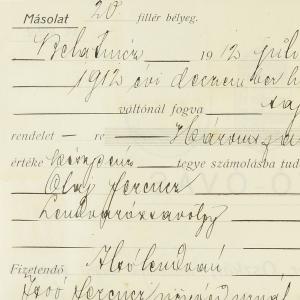 Másolat 20 fillér bélyeg.
Belatincz 1912 júli
1912 évi december h
váltónál fogva
rendelet — re Három sz
értéke készpénz tegye számolásba tud
Olaj Ferencz
Lendvarózsavölgy
Fizetendő Alsólendván
Ferencz